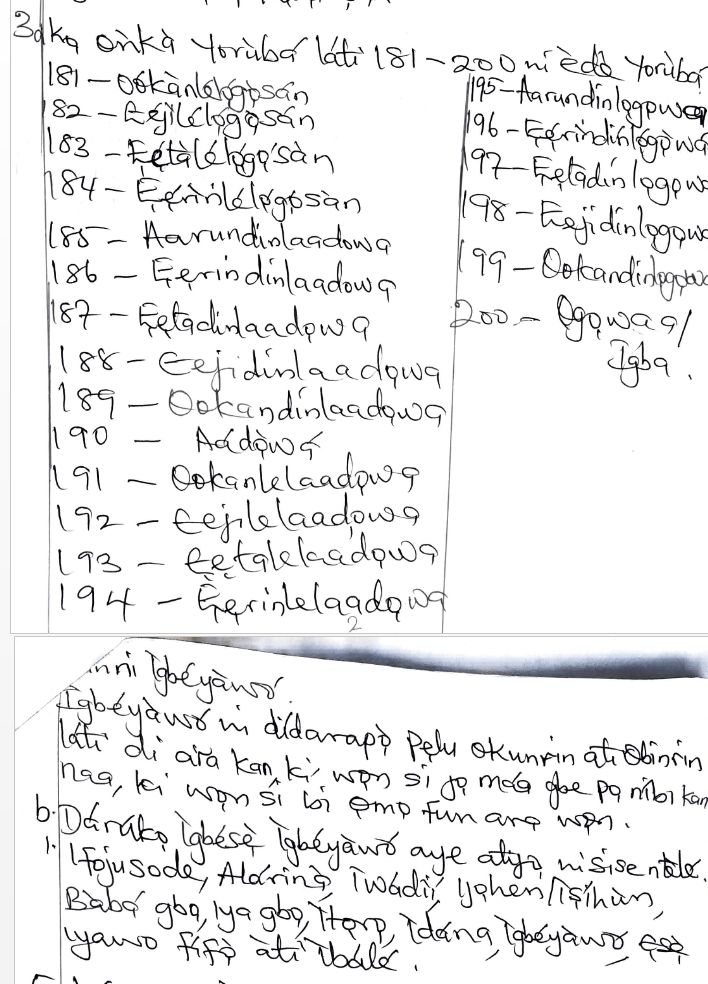 3a kọ ònkà Yorùbá láti 181 - 200 ní èdè Yorùbá
181 - Oókànlélógòsán
82 - Eéjìlélọ́gọ̀sán
183 - Ẹẹ́tàlélọ́gọ́sàn
184 - Ẹẹ́rìnlélọ́gọ́sàn
185 - Aarundinlaadowa
186 - Ẹẹrindinlaadowa
187 - Ẹẹtadinlaadọwa
188 - Eejidinlaadọwa
189 - Ookandinlaadọwa
190 - Aádọ̀wá
191 - Ookanlelaadọwa
192 - Eejilelaadọwa
193 - Ẹẹtalelaadọwa
194 - Ẹẹrinlelaadọwa
2
195 - Aarundinlọgọwa
196 - Ẹẹrindinlọgọwá
197 - Ẹẹtadinlọgọw
198 - Eejidinlọgọw
199 - Ookandinlọgọw
200 - Ọgọwaa/
Igba.
inni Ìgbéyàwó.
Ìgbéyàwó ni dídarapọ̀ pẹlu okunrin ati Obinrin
láti di ara kan, kí wọn si jọ máa gbe pọ nibi kan
naa, ki wọn sí bi ọmọ fun ara wọn.
b. Dárúkọ Ìgbésẹ̀ Ìgbéyàwó aye atijọ nisisentele.
1. Ifojusode, Alárinà, Ìwádìí, Ijohen/Ìsíhùn,
Bàbá gbọ, ìya gbọ, Ìtọrọ, Ìdána, Ìgbéyàwó
iyawo fífò àti Ìbálé.